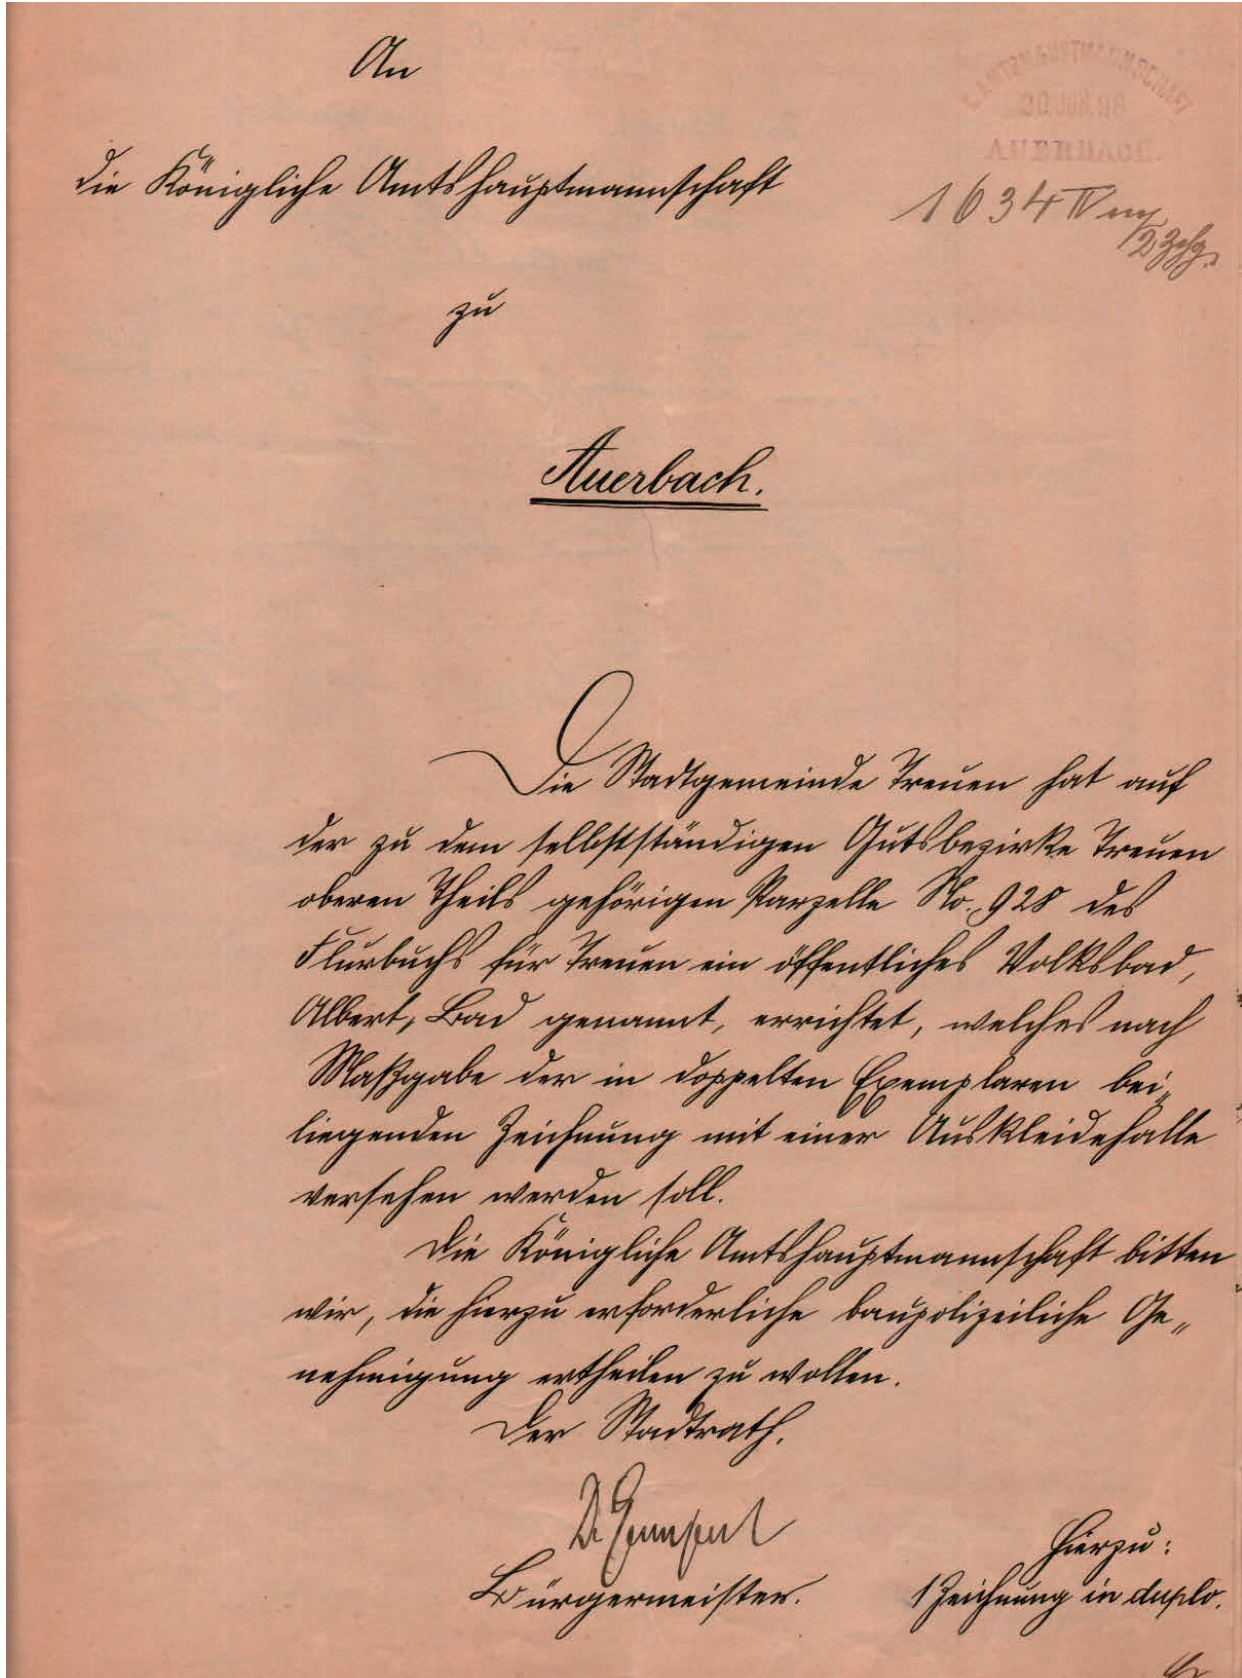 An
K. AMTSHAUPTMANNSCHAFT
AUERBACH.
die Königliche Amtshauptmannschaft
1634 IV
zu
Auerbach.
Die Stadtgemeinde Treuen hat auf
der zu dem selbstständigen Gutsbezirke Treuen
oberen Theils gehörigen Parzelle No. 928 des
Flurbuchs für Treuen ein öffentliches Volksbad,
Albert-Bad genannt, errichtet, welches nach
Maßgabe der in doppelten Exemplaren bei-
liegenden Zeichnung mit einer Auskleidehalle
versehen werden soll.
Die Königliche Amtshauptmannschaft bitten
wir, die hierzu erforderliche baupolizeiliche Ge-
nehmigung ertheilen zu wollen.
Der Stadtrath.
Dr
Bürgermeister.
Hierzu:
1 Zeichnung in duplo.